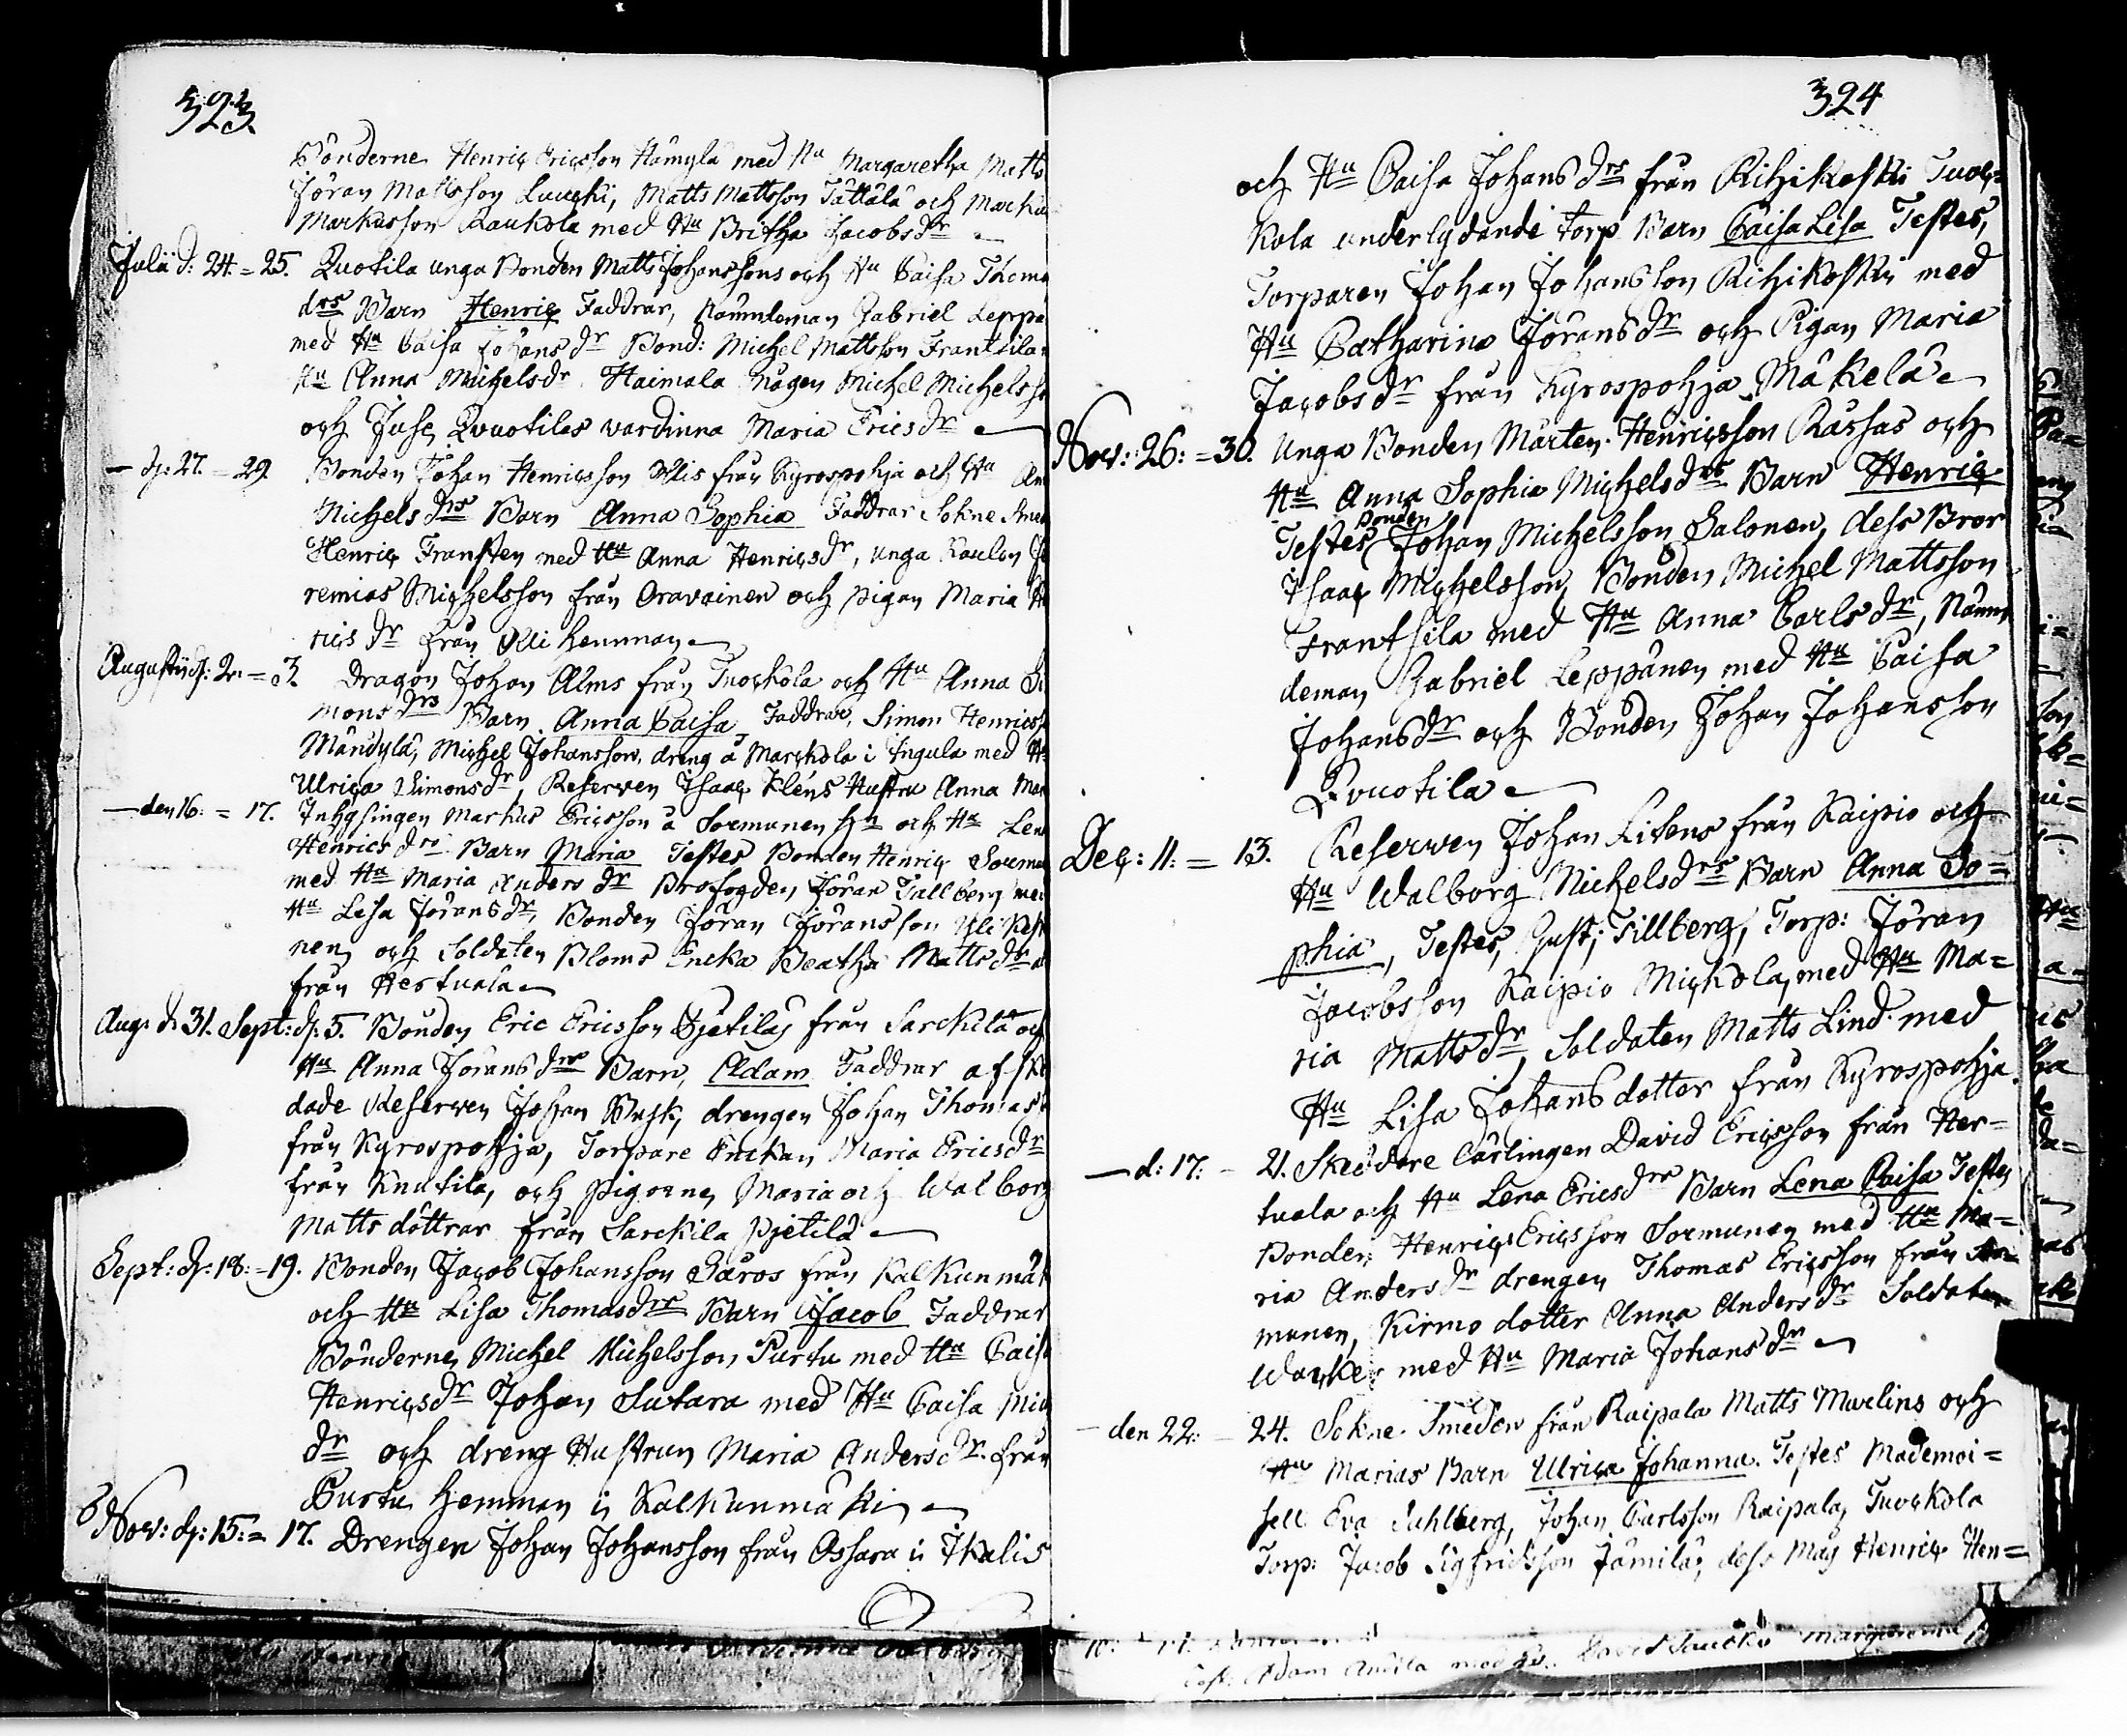 323.
Bönderne Henric Ericsson Hämylä med Hu Margaretha Matts
Jöran Mattsson Luucki, Matts Mattsson Tättälä och Markus
Markusson Raukola med Hu Britha Jacobsdr
Julii d: 24. = 25. Qvotila unga Bonden Matts Johanssons och Hu Caisa Thoma
drs Barn Henric Faddrar, Nämndeman Gabriel Leppä
med Hu Caisa Johansdr Bond: Michel Mattsson Frantsila
Hu Anna Michelsdr Haimala mågen Michel Michelsso
och Juse Qvuotilas värdinna Maria Ericsdr
— d: 27. = 29. Bonden Johan Henricsson Ollis från Kyrospohja och Hu An
Michelsdrs Barn Anna Sophia Faddrar Sokne Sme
Henric Fransten med Hu Anna Henricsdr, unga Karlen Je
remias Michelsson från Oravainen och pigan Maria He
ricsdr från Olli hemman
Augusti d: 2. = 3. Dragon Johan Alms från Tuockola och Hu Anna Si
monsdrs Barn Anna Caisa, Faddrar, Simon Henricsso
Mändylä, Michel Johansson, dreng å Marckola i Ingula med Hu
Ulrica Simonsdr, Reserven Isaac Kléns Hustru Anna Mar
— den 16: = 17. Inhysingen Markus Ericsson å Sormunen hn och Hu Len
Henricsdrs Barn Maria Testes Bonden Henric Sormu
med Hu Maria Andersdr Brofogden Jöran Tallberg med
Hu Lisa Jöransdr, Bonden Jöran Jöransson Yli Kest
nen och Soldaten Bloms Encka Beatha Mattsdr a
från Hertuala
Aug: d. 31. Sept: d: 5. Bonden Eric Ericsson Pjetilas från Sarckila och
Hu Anna Jöransdrs Barn, Adam Faddrar afske
dade Reserven Johan Busk, drengen Johan Thomass
från Kyrospohja, Torpare Enckan Maria Ericsdr
från Knutila, och pigorne Maria och Walborg
Matts döttrar från Sarckila Pjetilä
Sept: d: 18: = 19. Bonden Jacob Johansson Säros från Kalkunmäk
och Hu Lisa Thomasdrs Barn Jacob Faddrar
Bönderne Michel Michelsson Purtu med Hu Caisa
Henricsdr Johan Sutara med Hu Caisa Mich
dr och dreng Hustrun Maria Andersdr från
Purtu hemman i Kalkunmäki
Nov: d: 15: = 17. Drengen Johan Johansson från Ossara i Ikalis
324
och Hu Caisa Johansdrs från Rihikoski Tuoc=
kola underlydande torp Barn Caisa Lisa Testes,
Torparen Johan Johansson Rihikoski med
Hu Catharina Jöransdr och Pigan Maria
Jacobsdr från Kyrospohja Mäkelä
Nov: 26: = 30. Unga Bonden Mårten Henricsson Rassas och
Hu Anna Sophia Michelsdrs Barn Henric
Bonden
Testes Johan Michelsson Salonen, dess Bror
Isaac Michelsson, Bonden Michel Mattsson
Frantsila med Hu Anna Carlsdr, Nämn
deman Gabriel Leppänen med Hu Caisa
Johansdr och Bonden Johan Johansson
Qvuotila
Dec: 11: = 13. Reserven Johan Litens från Kaipio och
Hu Walborg Michelsdrs Barn Anna So=
phia, Testes, Gust: Tillberg, Torp: Jöran
Jacobsson Kaipio Mickola, med Hu Ma=
ria Mattsdr, Soldaten Matts Lind med
Hu Lisa Johans dotter från Kyrospohja
— d: 17. - 21. Skeddare Lärlingen David Ericsson från Her=
tuala och Hu Lena Ericsdrs Barn Lena Caisa Testes
Bonden Henric Ericsson Sormunen med Hu Ma=
ria Andersdr drengen Thomas Ericsson från Sor
munen, Kirmo dotter Anna Andersdr Soldaten
Wacker med Hu Maria Johansdr
— den 22: - 24. Sokne Smeden från Raipala Matts Murlins och
Hu Marias Barn Ulrica Johanna. Testes Mademoi=
sell Eva Sahlberg, Johan Carlsson Raipala, Tuockola
Torp: Jacob Sigfridsson Jämilä, dess Måg Henric Hen=